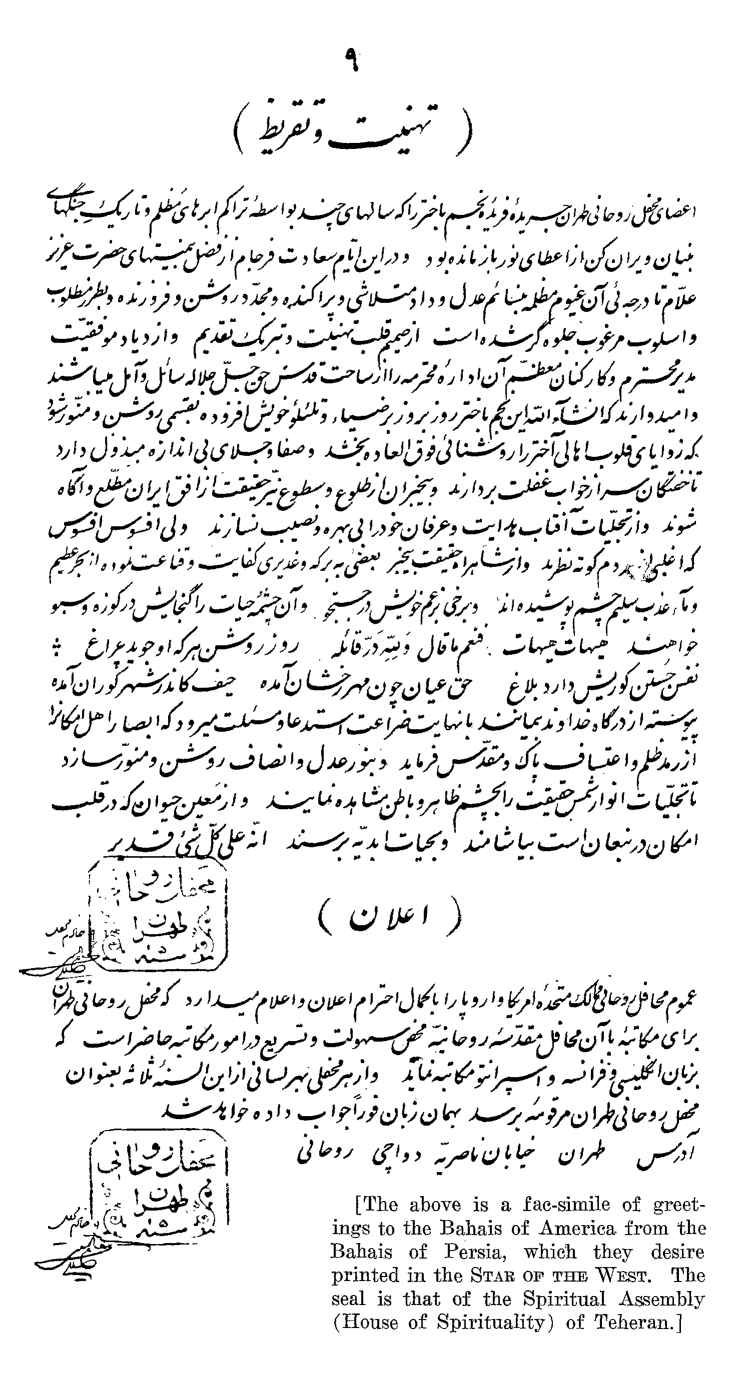 ۹
( تهنیت و تقریظ )
اعضای محفل روحانی طهران جریدهٔ فریدهٔ نجم باختر را که سالهای چند بواسطهٔ تراکم ابرهای مظلم و تاریک جنگهای
بنیان ویران کن از اعطای نور باز مانده بود و در این ایام سعادت فرجام از فضل بمنتهای حضرت عزیز
علّام تا درجه ئی آن غیوم مظلمه بنسائم عدل و داد متلاشی و پراکنده و مجدّد روشن و فروزنده و بطرز مطلوب
و اسلوب مرغوب جلوه گر شده است از صمیم قلب تهنیت و تبریک تقدیم و ازدیاد موفقیّت
مدیر محترم و کارکنان معظّم آن ادارهٔ محترمه را از ساحت قدس حق جلّ جلاله سائل و آمل میباشند
و امیدوارند که انشآءالله این نجم باختر روز بروز بر ضیاء و تلئلؤ خویش افزوده بقسمی روشن و منوّر شود
که زوایای قلوب اهالی آختر را روشنائی فوق العاده بخشد و صفا و جلای بی اندازه مبذول دارد
تا خفتگان سر از خواب غفلت بردارند و بیخبران از طلوع و سطوع نیّر حقیقت از افق ایران مطّلع و آگاه
شوند و از تجلّیات آفتاب هدایت و عرفان خود را بی بهره و نصیب نسازند ولی افسوس افسوس
که اغلبی از مردم کوته نظرند و از شاهراه حقیقت بیخبر بعضی به برکه و غدیری کفایت و قناعت نموده از بحر عظیم
و مآء عذب سلیم چشم پوشیده اند و برخی بزعم خویش در جستجو و آن چشمهٔ حیات را گنجایش در کوزه و سبو
خواهند هیهات هیهات فنعم ما قال و لله درّ قائله روز روشن هر که او جوید چراغ ؛
نفس جُستن کوریش دارد بلاغ حق عیان چون مهر رخشان آمده حیف کاندر شهر کوران آمده
پیوسته از درگاه خداوند بیمانند با نهایت ضراعت استدعا و مسئلت میرود که ابصار اهل امکانرا
از رمد ظلم و اعتساف پاک و مقدّس فرماید و بنور عدل و انصاف روشن و منوّر سازد
تا تجلّیات انوار شمس حقیقت را بچشم ظاهر و باطن مشاهده نمایند و از معین حیوان که در قلب
امکان در نبعان است بیاشامند و بحیات ابدیّه برسند انّه علی کلّ شیٔ قدیر
محفل روحانی
طهران
سنه
( اعلان )
عموم محافل روحانی ممالک متحدهٔ امریکا و اروپا را با کمال احترام اعلان و اعلام میدارد که محفل روحانی طهران
برای مکاتبهٔ با آن محافل مقدّسهٔ روحانیّه محض سهولت و تسریع در امور مکاتبه حاضر است که
بزبان انگلیسی و فرانسه و اسپرانتو مکاتبه نماید و از هر محفلی بهر لسانی از این السنهٔ ثلاثه بعنوان
محفل روحانی طهران مرقومهٔ برسد بهمان زبان فوراً جواب داده خواهد شد
آدرس طهران خیابان ناصریّه دواچی روحانی
محفل روحانی
طهران
سنه
[The above is a fac-simile of greet-
ings to the Bahais of America from the
Bahais of Persia, which they desire
printed in the STAR OF THE WEST. The
seal is that of the Spiritual Assembly
(House of Spirituality) of Teheran.]